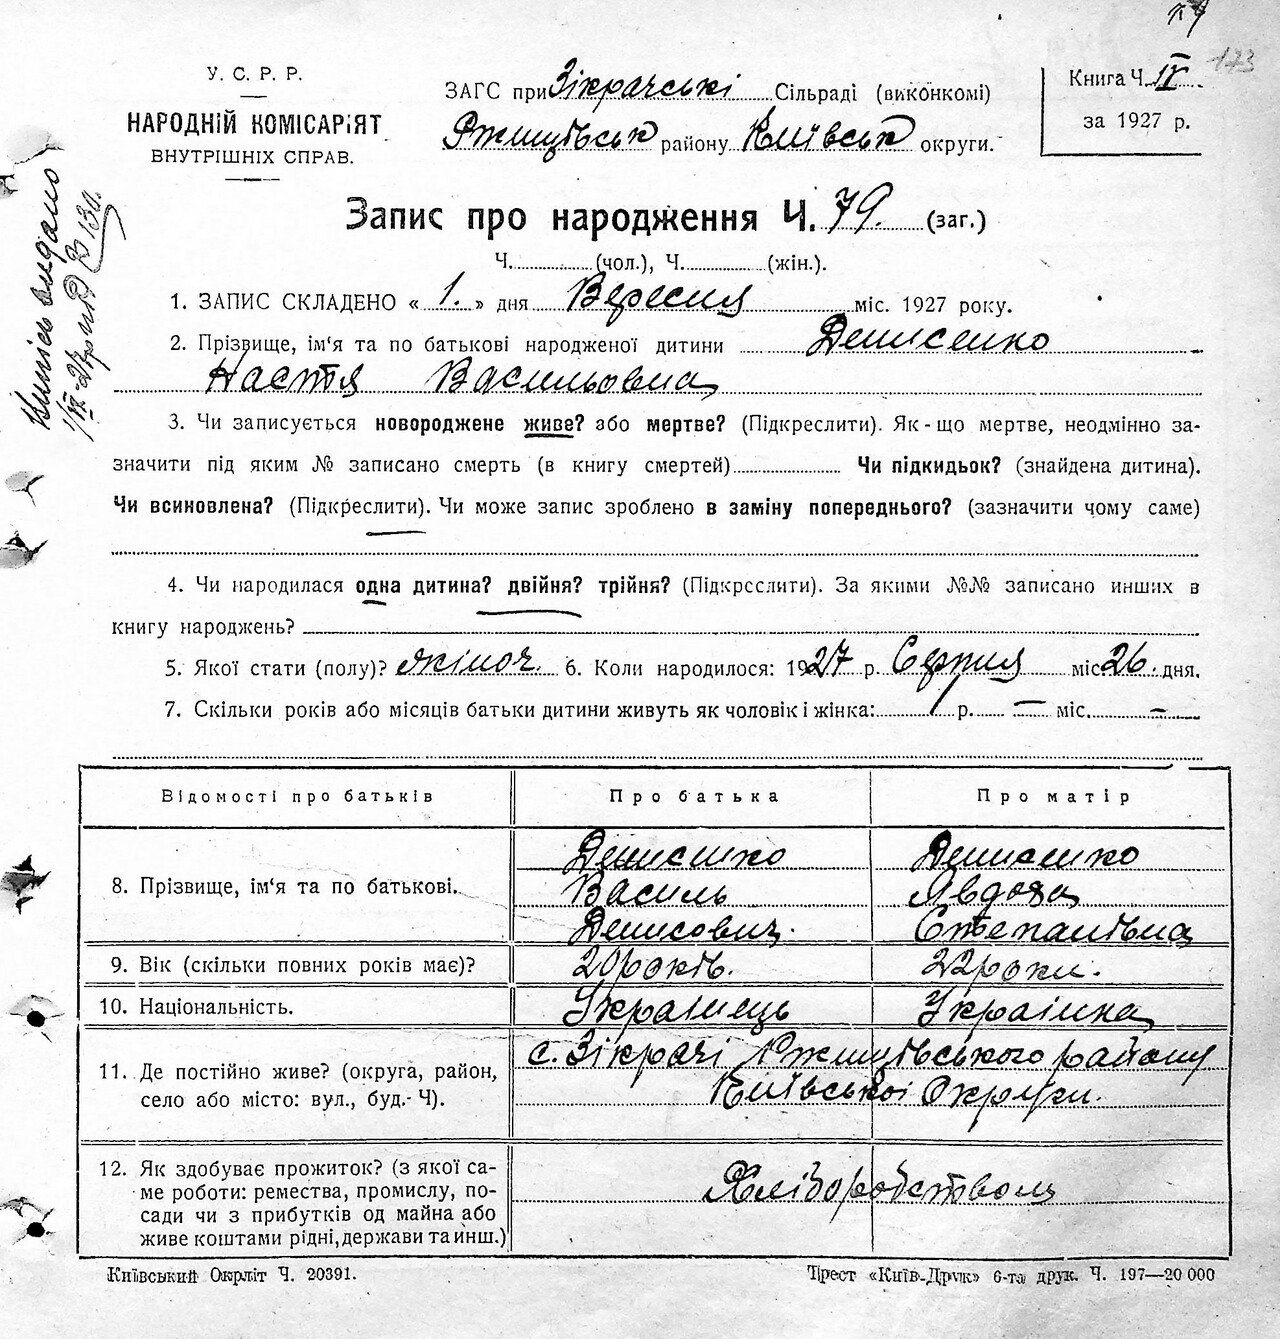 У. С. Р. Р.
НАРОДНІЙ КОМІСАРІЯТ
ВНУТРІШНІХ СПРАВ.
ЗАГС при Зікрачські Сільраді (виконкомі)
Ржищівськ району Київськ округи.
Книга Ч. IV
за 1927 р.
173
79
Випись видано
Запис про народження Ч. 79. (заг.)
Ч. (чол.), Ч. (жін.).
1. ЗАПИС СКЛАДЕНО « 1. » дня Вересня міс. 1927 року.
2. Прізвище, ім'я та по батькові народженої дитини Денисенко
Настя Васильовна
3. Чи записується новороджене живе? або мертве? (Підкреслити). Як-що мертве, неодмінно за-
значити під яким № записано смерть (в книгу смертей) Чи підкидьок? (знайдена дитина).
Чи всиновлена? (Підкреслити). Чи може запис зроблено в заміну попереднього? (зазначити чому саме)
4. Чи народилася одна дитина? двійня? трійня? (Підкреслити). За якими №№ записано инших в
книгу народжень?
5. Якої стати (полу)? жіноч. 6. Коли народилося: 1927 р. Серпня міс. 26. дня.
7. Скільки років або місяців батьки дитини живуть як чоловік і жінка: 1 р. — міс. —
Відомості про батьків Про батька Про матір
8. Прізвище, ім'я та по батькові. Денисенко Василь Денисович. Денисенко Явдоха Степанівна
9. Вік (скільки повних років має)? 20 років. 22 роки.
10. Національність. Украінець Украінка
11. Де постійно живе? (округа, район,
село або місто: вул., буд.- Ч).
с. Зікрачі Ржищівського району
Київськоі Округи.
12. Як здобуває прожиток? (з якої са-
ме роботи: ремества, промислу, по-
сади чи з прибутків од майна або
живе коштами рідні, держави та инш.)
Хліборобством
Київський Окрліт Ч. 20391.
Трест «Київ-Друк» 6-та друк. Ч. 197—20 000